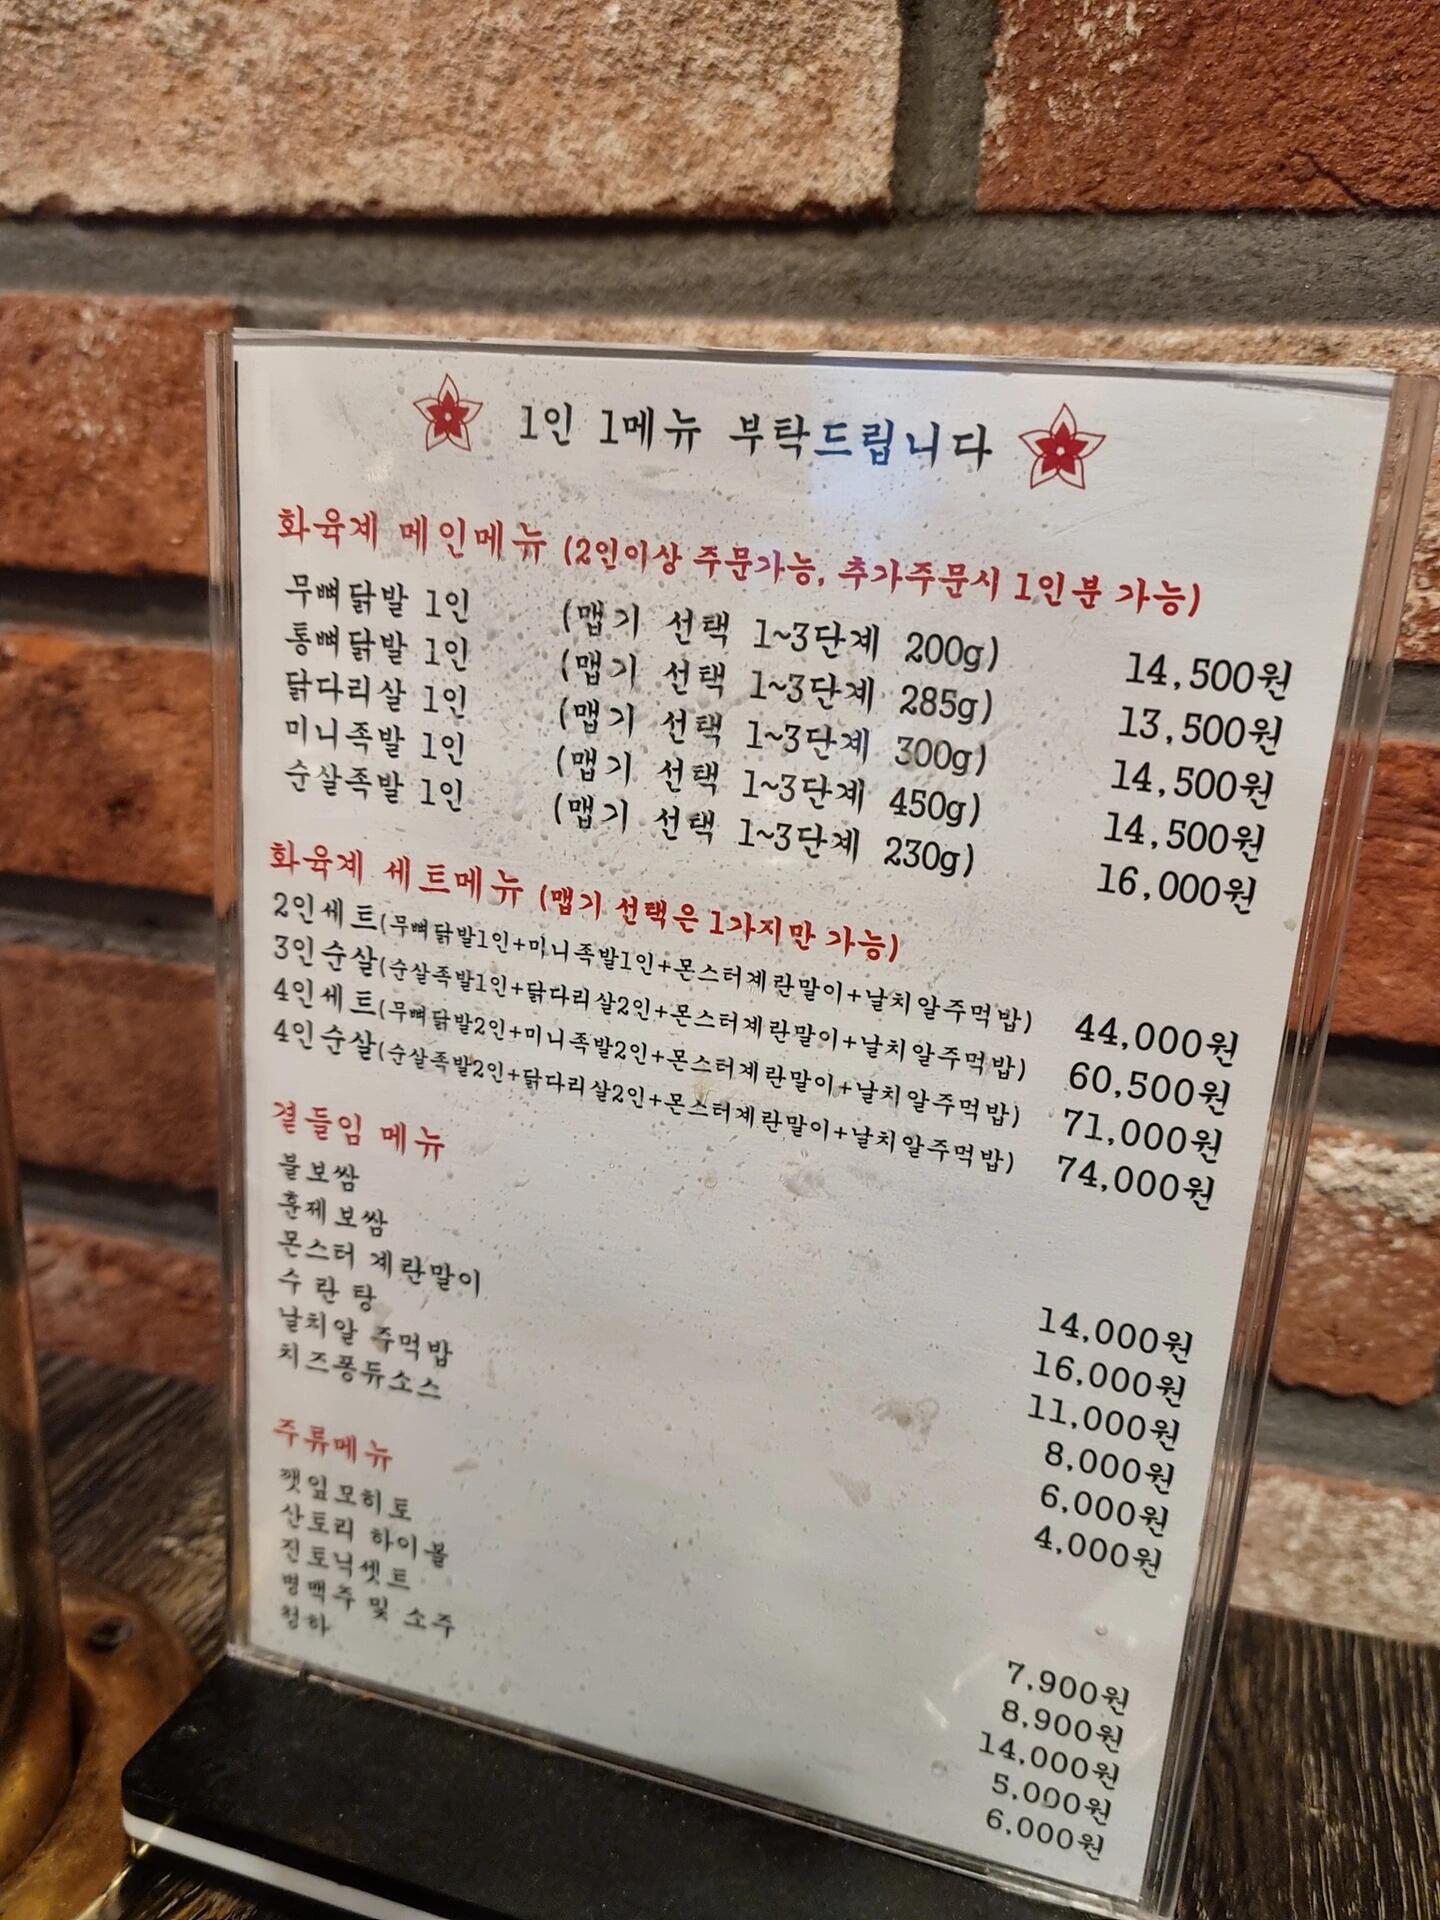 1인 1메뉴 부탁드립니다
화육계 메인메뉴 (2인이상 주문가능, 추가주문시 1인분 가능)
무뼈닭발 1인 (맵기 선택 1~3단계 200g) 14,500원
통뼈닭발 1인 (맵기 선택 1~3단계 285g) 13,500원
닭다리살 1인 (맵기 선택 1~3단계 300g) 14,500원
미니족발 1인 (맵기 선택 1~3단계 450g) 14,500원
순살족발 1인 (맵기 선택 1~3단계 230g) 16,000원
화육계 세트메뉴 (맵기 선택은 1가지만 가능)
2인세트(무뼈닭발1인+미니족발1인+몬스터계란말이+날치알주먹밥) 44,000원
3인순살(순살족발1인+닭다리살2인+몬스터계란말이+날치알주먹밥) 60,500원
4인세트(무뼈닭발2인+미니족발2인+몬스터계란말이+날치알주먹밥) 71,000원
4인순살(순살족발2인+닭다리살2인+몬스터계란말이+날치알주먹밥) 74,000원
곁들임 메뉴
불보쌈 14,000원
훈제보쌈 16,000원
몬스터 계란말이 11,000원
수란탕 8,000원
날치알 주먹밥 6,000원
치즈퐁듀소스 4,000원
주류메뉴
깻잎모히토 7,900원
산토리 하이볼 8,900원
진토닉셋트 14,000원
병맥주 및 소주 5,000원
청하 6,000원